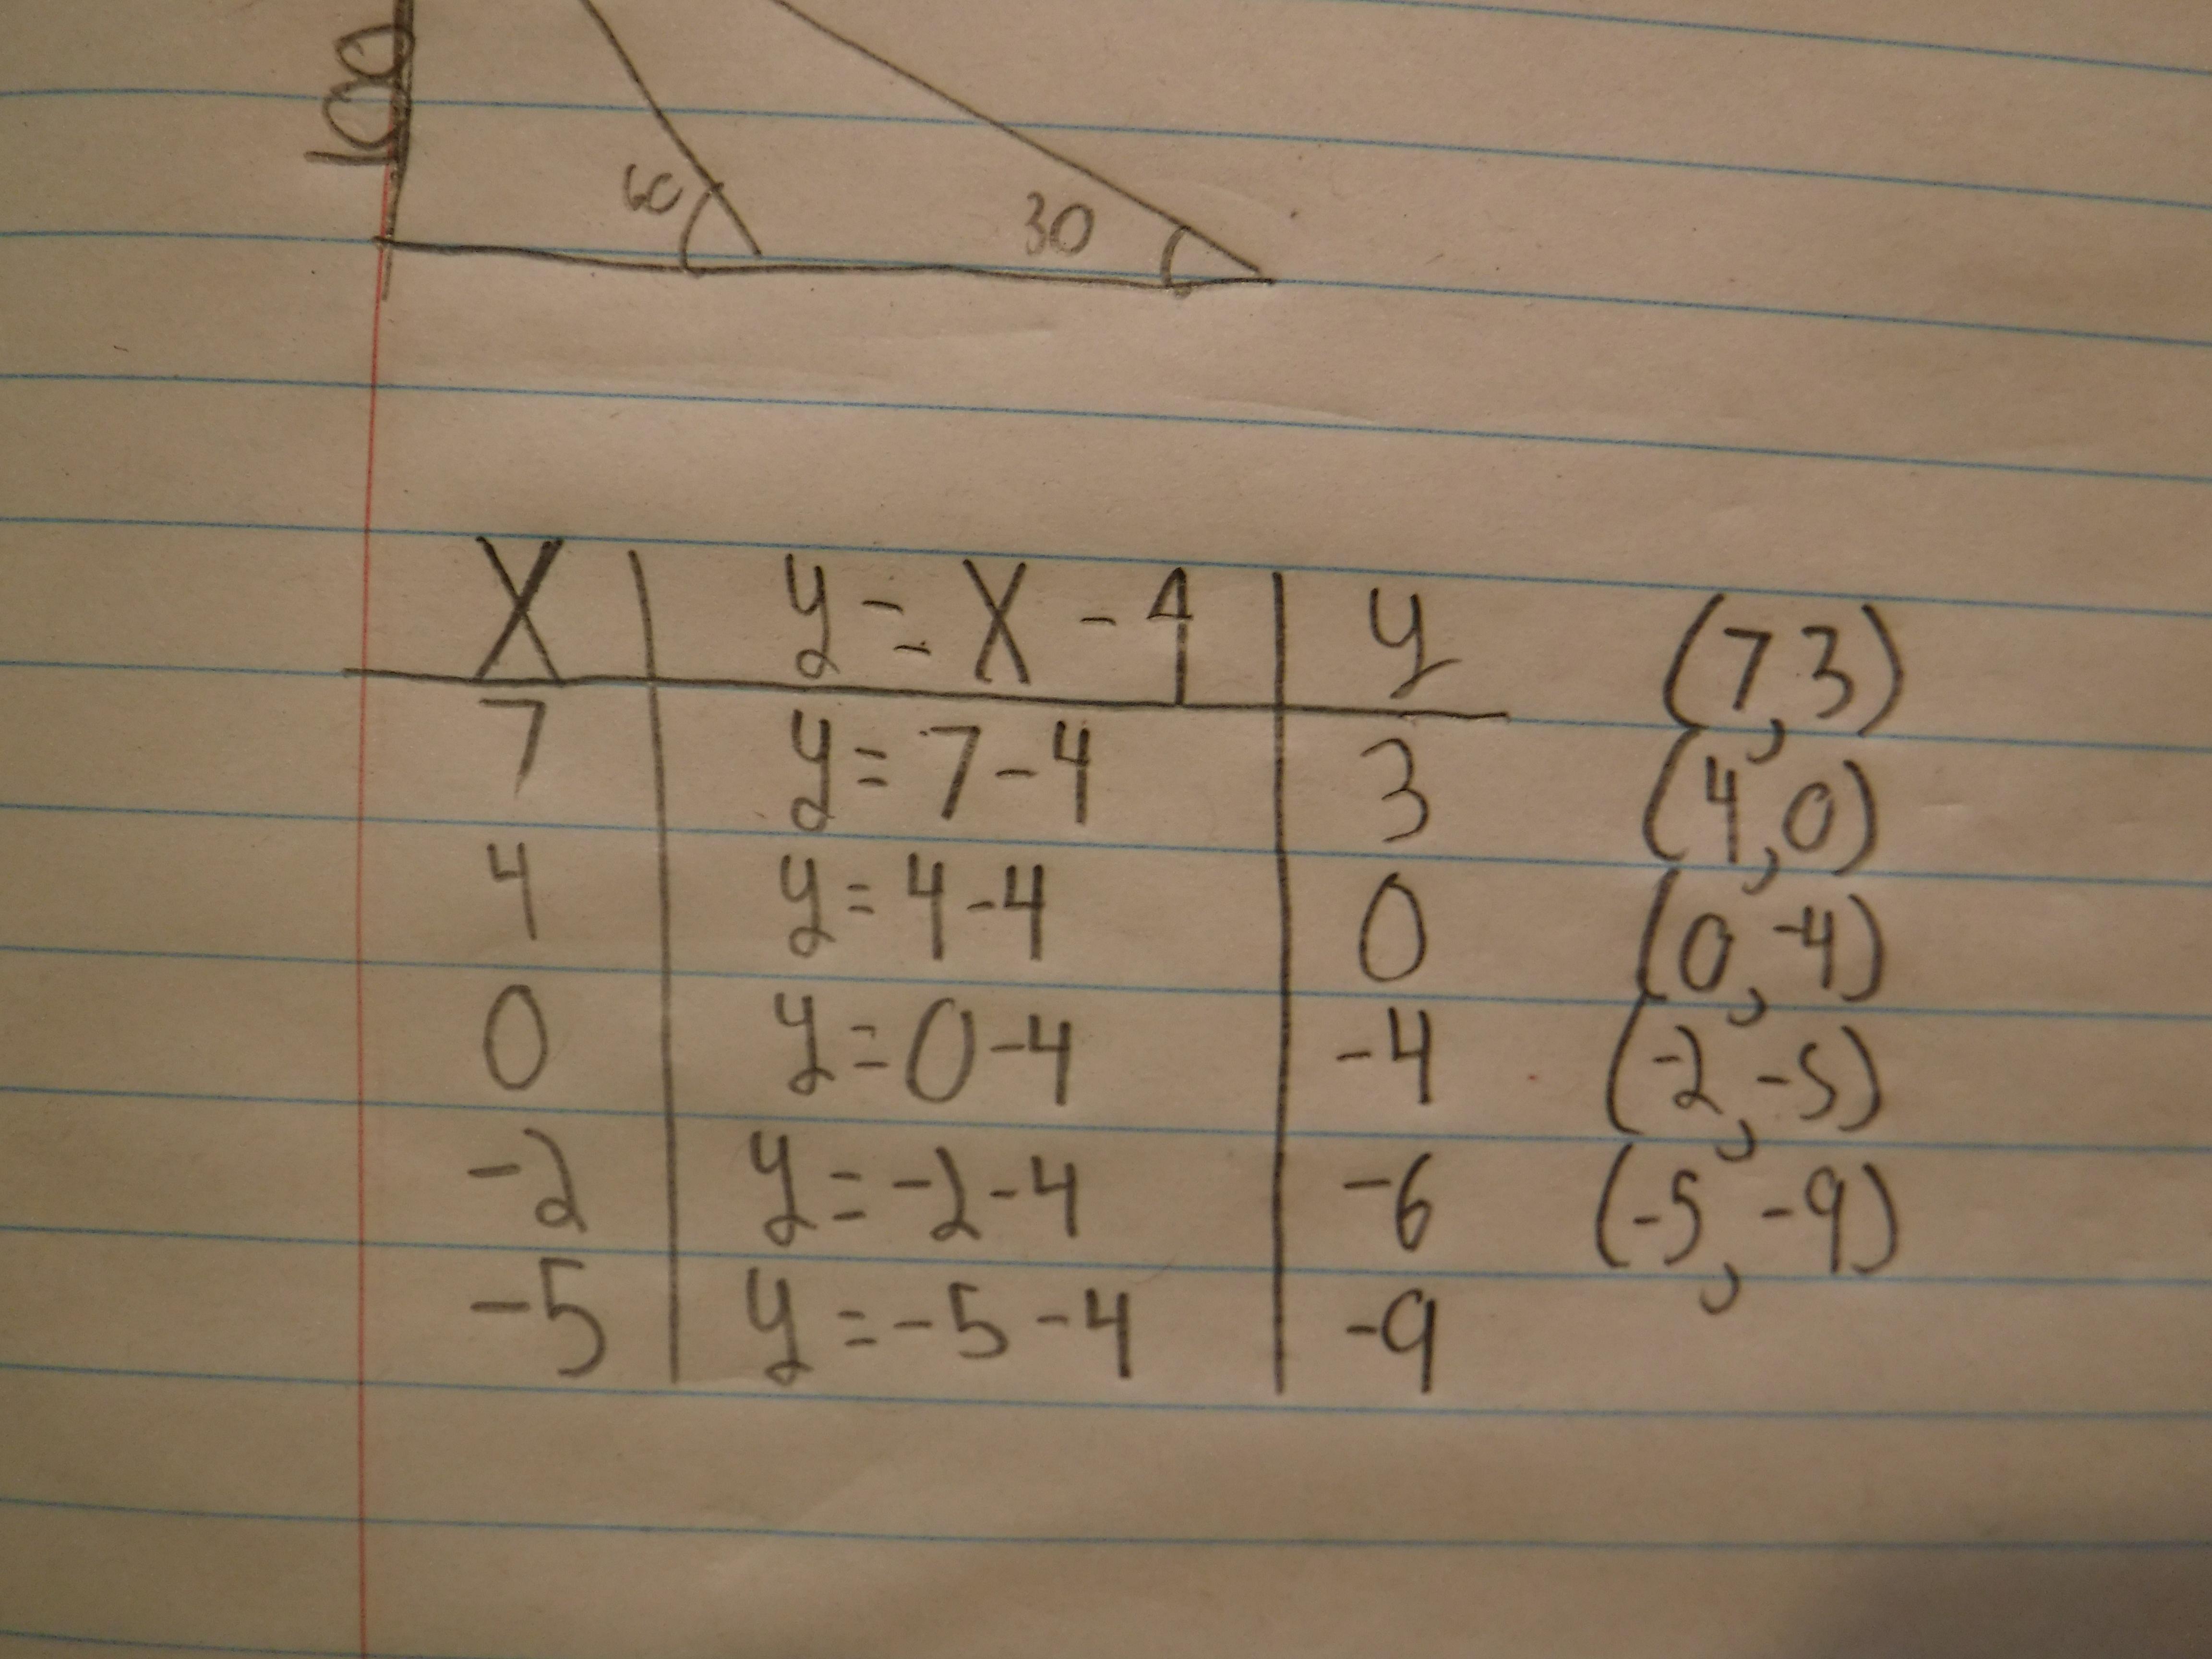 100
60
30
X | y = X - 4 | y (7,3)
7 | y = 7 - 4 | 3 (4,0)
4 | y = 4 - 4 | 0 (0,-4)
0 | y = 0 - 4 | -4 (-2,-5)
-2 | y = -2 - 4 | -6 (-5,-9)
-5 | y = -5 - 4 | -9